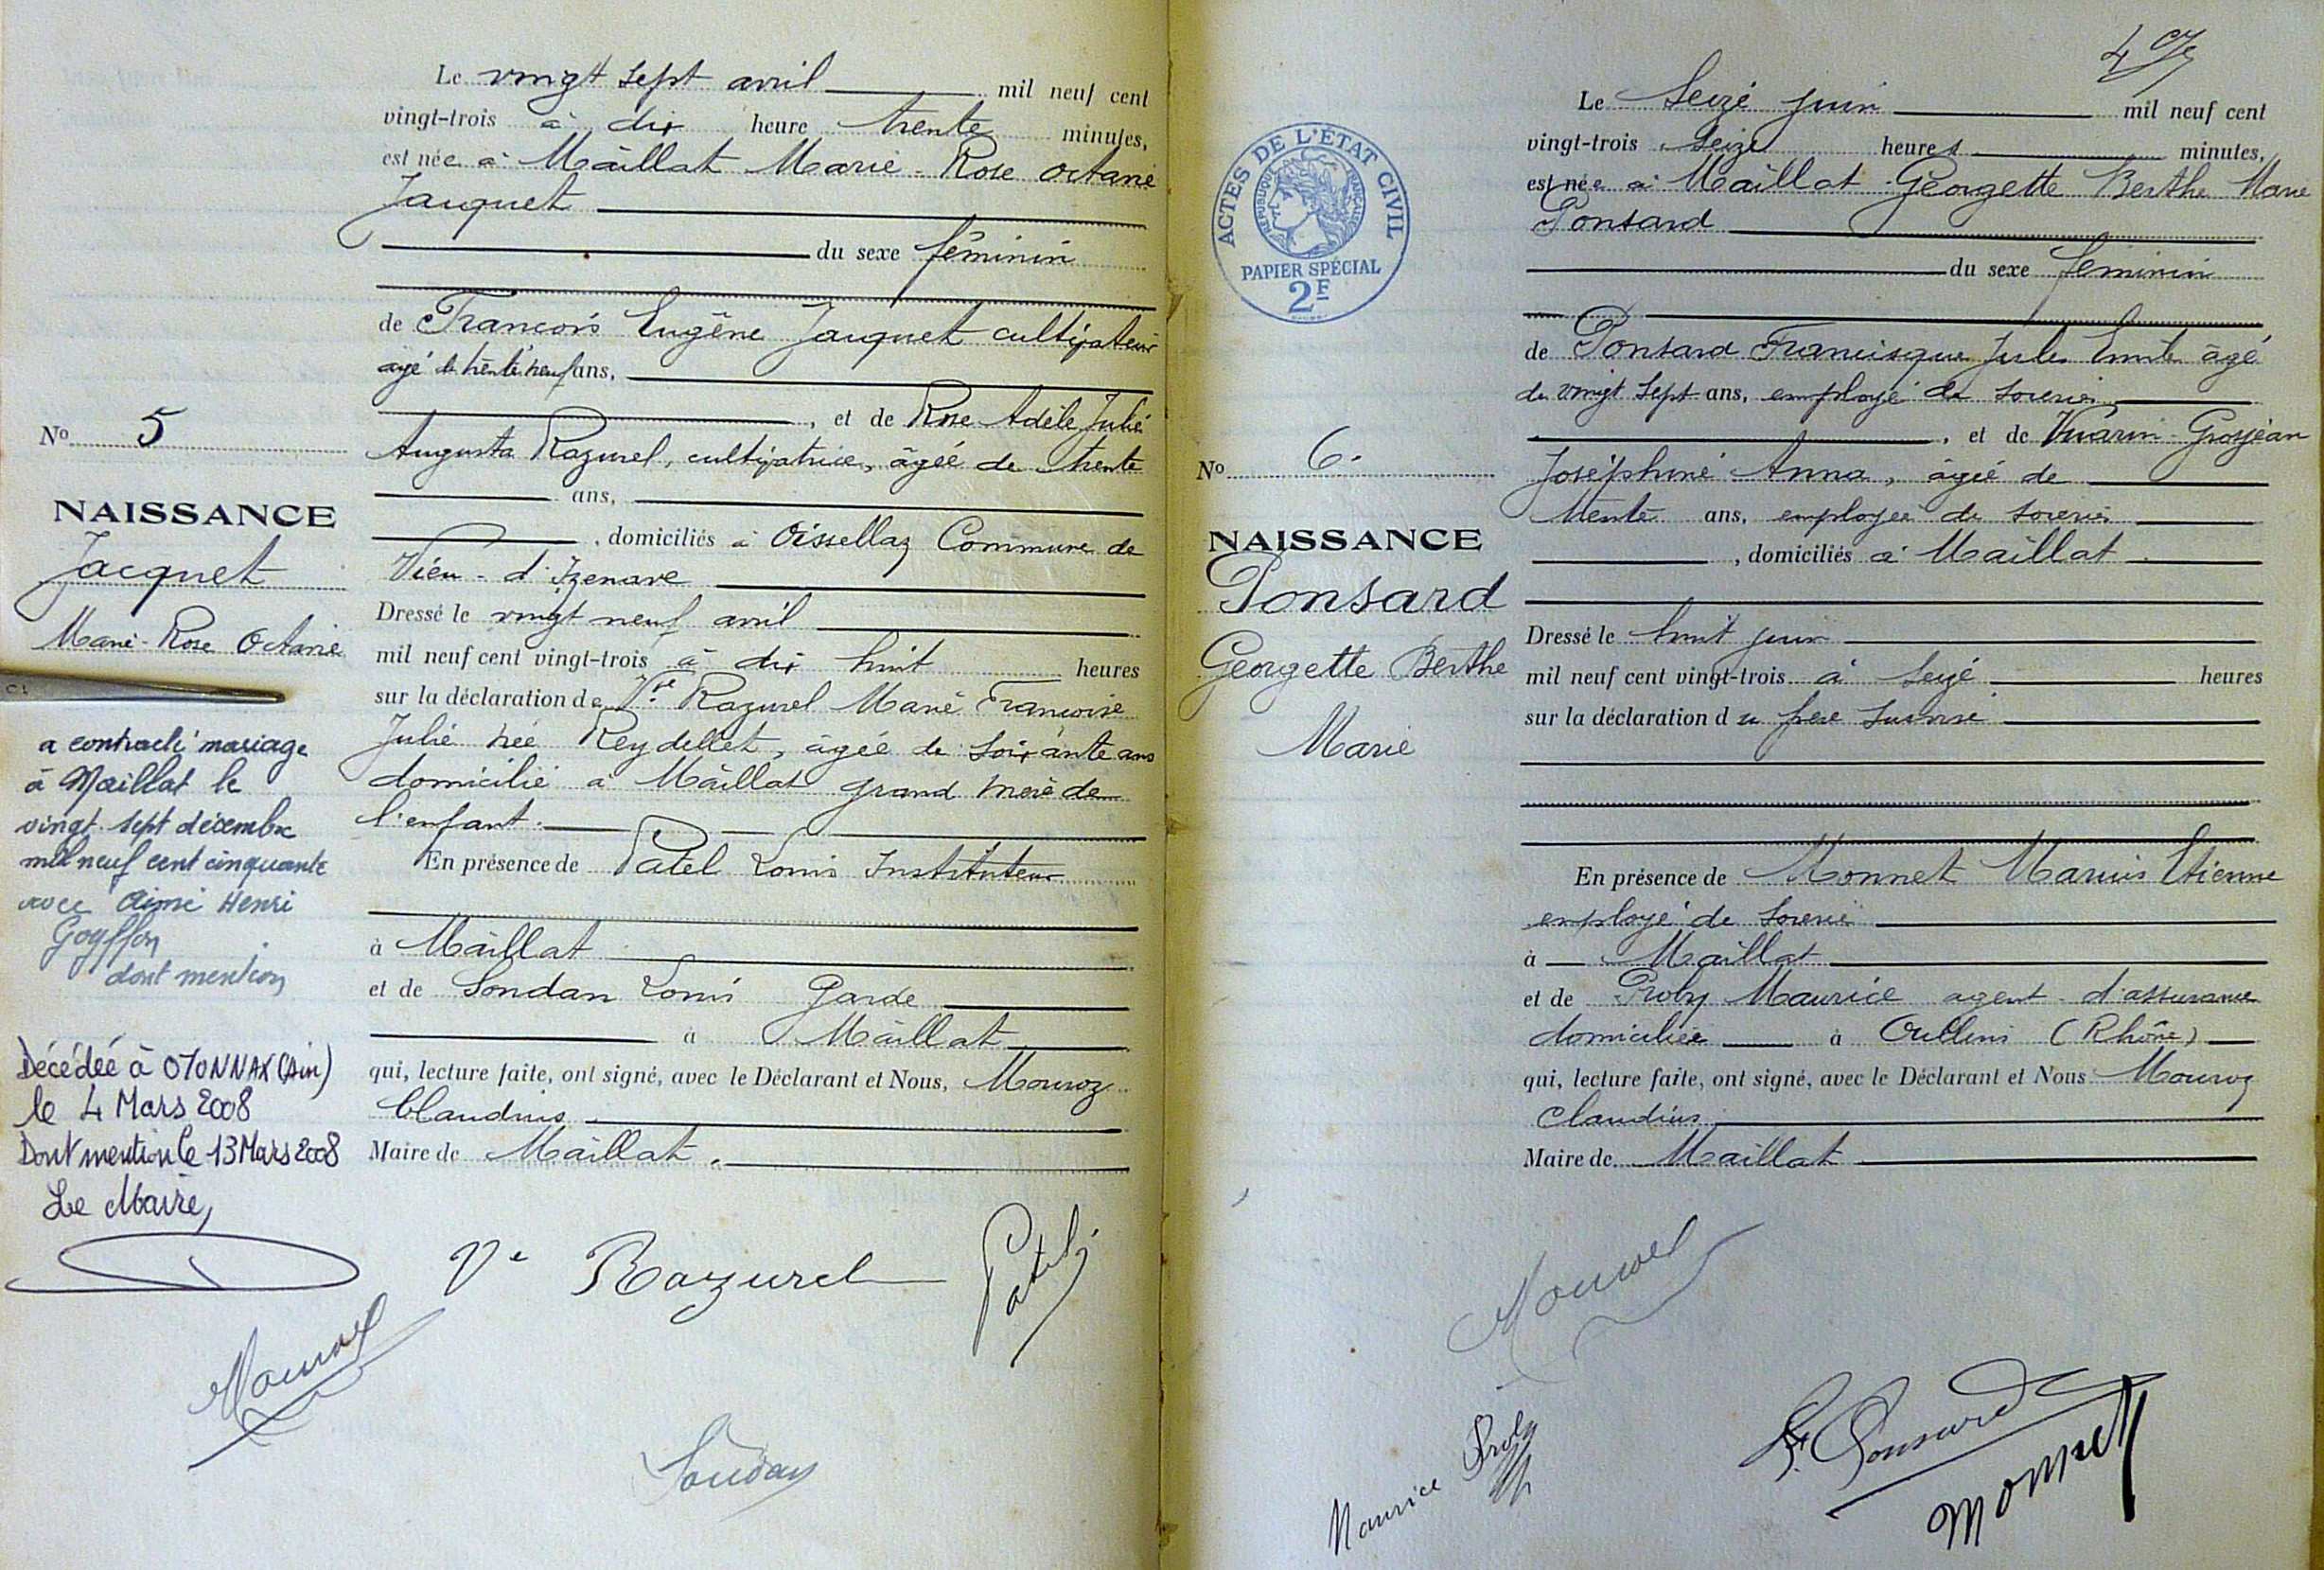 Le vingt sept avril mil neuf cent
vingt-trois à dix heure trente minutes,
est née à Maillat Marie-Rose Octavie
Jacquet
du sexe féminin
de François Eugène Jacquet cultivateur
âgé de trente neuf ans,
, et de Rose Adèle Julie
Augusta Razurel, cultivatrice, âgée de trente
ans,
, domiciliés à Oissellaz Commune de
Vieu-d'Izenave
Dressé le vingt neuf avril
mil neuf cent vingt-trois à dix huit heures
sur la déclaration de Vve Razurel Marie Françoise
Julie née Reydellet, âgée de soixante ans
domicilié à Maillat grand mère de
l'enfant.
En présence de Patel Louis Instituteur
à Maillat
et de Soudan Louis Garde
à Maillat
qui, lecture faite, ont signé, avec le Déclarant et Nous, Mouroz
Claudius
Maire de Maillat.
No 5
NAISSANCE
Jacquet
Marie-Rose Octavie
a contracté mariage
à Maillat le
vingt sept décembre
mil neuf cent cinquante
avec Aimé Henri
Goyffon
dont mention
Décédée à OYONNAX (Ain)
le 4 Mars 2008
Dont mention le 13 Mars 2008
Le Maire,
Ve Razurel
Patel
Mouroz
Soudan
ACTES DE L'ÉTAT CIVIL
RÉPUBLIQUE FRANÇAISE
PAPIER SPÉCIAL
2F
No 6.
NAISSANCE
Ponsard
Georgette Berthe
Marie
Le Seize juin mil neuf cent
vingt-trois seize heures minutes,
est née à Maillat Georgette Berthe Marie
Ponsard
du sexe féminin
de Ponsard Francisque Jules Emile âgé
de vingt sept ans, employé de soierie
, et de Vuarin-Grosjean
Joséphine Anna, âgée de
trente ans, employée de soierie
, domiciliés à Maillat
Dressé le huit juin
mil neuf cent vingt-trois à seize heures
sur la déclaration du père
En présence de Monnet Marius Etienne
employé de soierie
à Maillat
et de Proby Maurice agent d'assurance
domiciliée à Oullins (Rhône)
qui, lecture faite, ont signé, avec le Déclarant et Nous Mouroz
Claudius
Maire de Maillat
Mouroz
Maurice Proby
Ponsard
Monnet